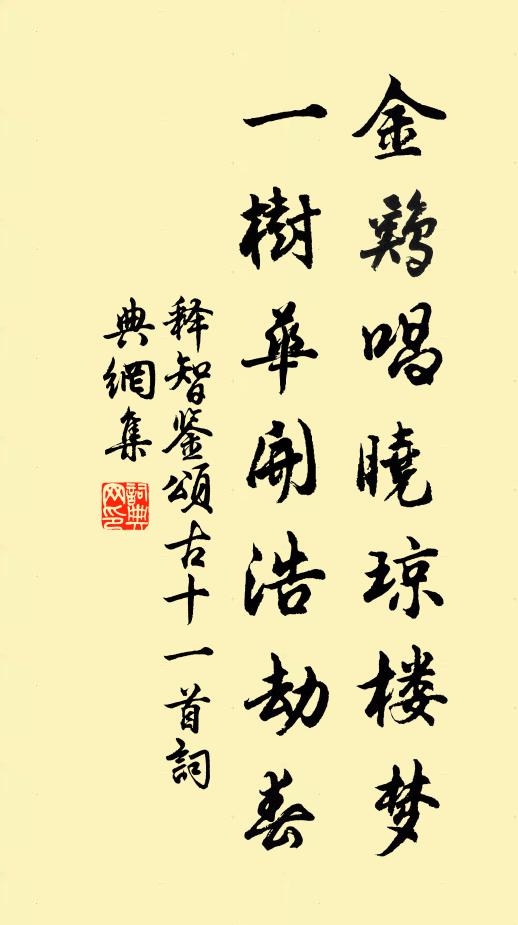 金鷄唱曉琼楼梦
一樹華開浩劫春
释智鉴頌古十一首詞
典網集
詞典
网印